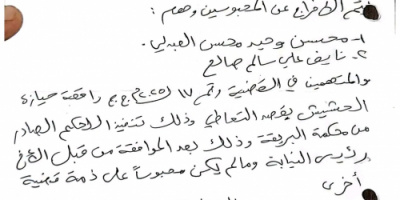 فتم الإفراج عن المحبوسين وهم :
١- محسن وحيد محسن العبدلي.
٢- نايف علي سالم صالح
والمتهمين في القضية رقم ١٧ لـ ٢٠٢٥م ج.ج رافقة حيازة
الحشيش بقصد التعاطي وذلك تنفيذ للحكم الصادر
من محكمة البريقة وذلك بعد الموافقة من قبل الأخ
رئيس النيابة ومالم يكن محبوساً على ذمة قضية
أخرى